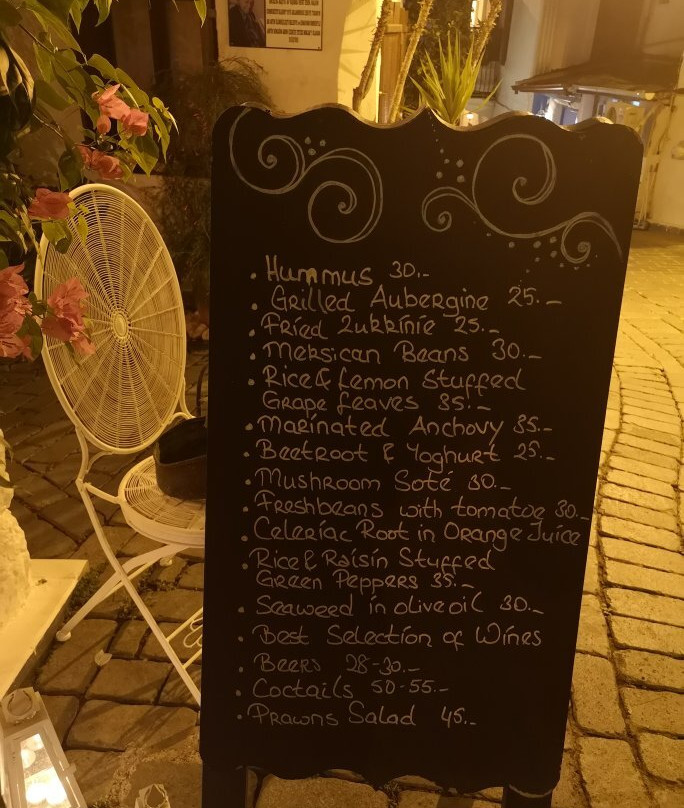 • Hummus 30.-
• Grilled Aubergine 25.-
• Fried Zukkinie 25.-
• Meksican Beans 30.-
• Rice & Lemon Stuffed
Grape Leaves 35.-
• Marinated Anchovy 35.-
• Beetroot & Yoghurt 25.-
• Mushroom Soté 30.-
• Freshbeans with tomatoe 30.-
• Celeriac Root in Orange Juice
• Rice & Raisin Stuffed
Green Peppers 35.-
• Seaweed in olive oil 30.-
• Best Selection of Wines
• Beers 28-30.-
• Coctails 50-55.-
• Prawns Salad 45.-